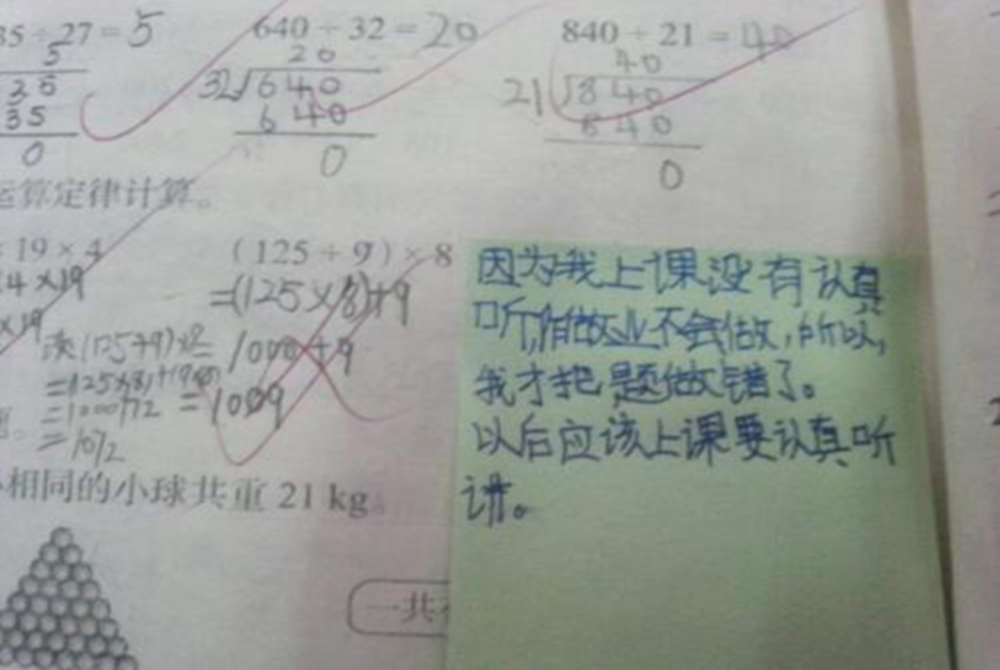 35÷27=5
5
35
35
0
640÷32=20
20
32 640
640
0
840÷21=40
40
21 840
840
0
运算定律计算。
×19×4
4×19
×19
(125+9)×8
=(125×8)+9
=1000+9
=1009
=1000+72
=1072
相同的小球共重21 kg。
一共
因为我上课没有认真
听,作业不会做,所以,
我才把题做错了。
以后应该上课要认真听
讲。